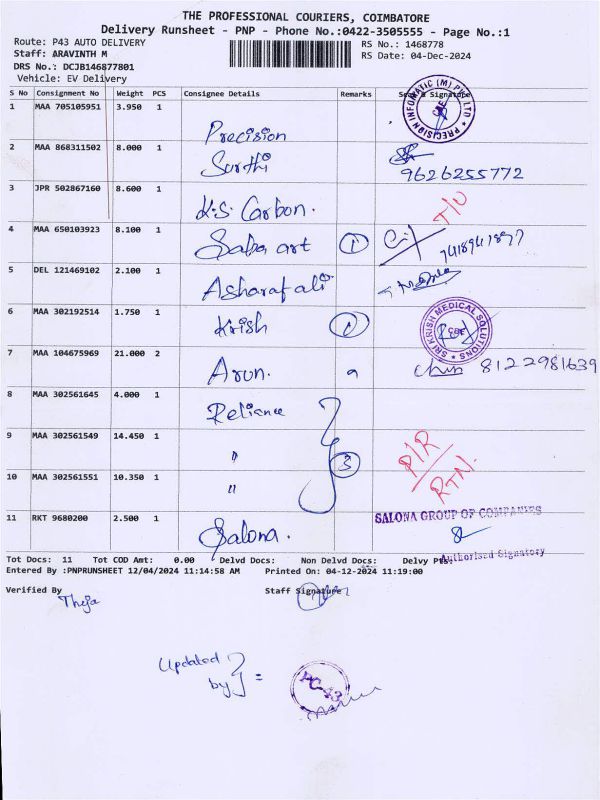 THE PROFESSIONAL COURIERS, COIMBATORE
Delivery Runsheet - PNP - Phone No.:0422-3505555 - Page No.:1
Route: P43 AUTO DELIVERY RS No.: 1468778
Staff: ARAVINTH M RS Date: 04-Dec-2024
DRS No.: DCJB146877801
Vehicle: EV Delivery
S No Consignment No Weight PCS Consignee Details Remarks Seal & Signature
1 MAA 705105951 3.950 1 Precision PRECISION INFOMATIC (M) PVT LTD CBE
2 MAA 868311502 8.000 1 Surthi 9626255772
3 JPR 502867160 8.600 1 K.S. Carbon. T/U
4 MAA 650103923 8.100 1 Saba art 1
5 DEL 121469102 2.100 1 Asharaf ali
6 MAA 302192514 1.750 1 Krish 1 SRI KRISH MEDICAL SOLUTIONS CBE
7 MAA 104675969 21.000 2 Arun. 8122981639
8 MAA 302561645 4.000 1 Reliance
9 MAA 302561549 14.450 1 " 3 P/R
10 MAA 302561551 10.350 1 " RTN.
11 RKT 9680200 2.500 1 Salona. SALONA GROUP OF COMPANIES
Authorised Signatory
Tot Docs: 11 Tot COD Amt: 0.00 Delvd Docs: Non Delvd Docs: Delvy Pts:
Entered By :PNPRUNSHEET 12/04/2024 11:14:58 AM Printed On: 04-12-2024 11:19:00
Verified By Staff Signature
Theja
Updated
by =